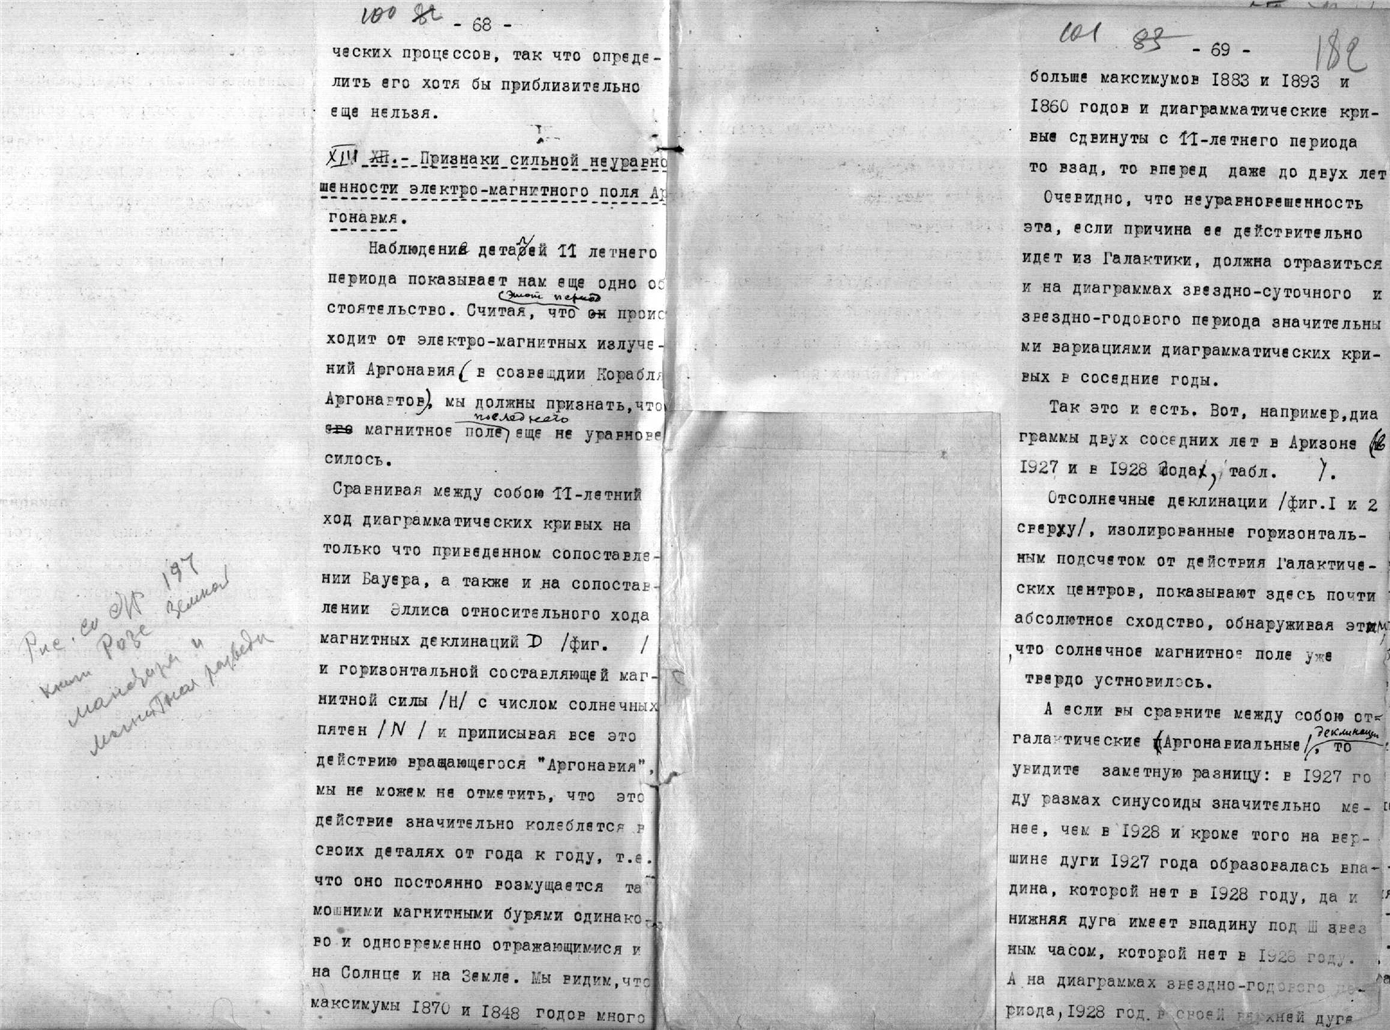 100 82 - 68 -
ческих процессов, так что опреде-
лить его хотя бы приблизительно
еще нельзя.
XIII XII.- Признаки сильной неуравно
шенности электро-магнитного поля Ар
гонавия.
Наблюдение деталей 11 летнего
периода показывает нам еще одно об
этот период
стоятельство. Считая, что он проис
ходит от электро-магнитных излуче-
ний Аргонавия( в созвещдии Корабля
Аргонавтов), мы должны признать,что
последнего
его магнитное поле, еще не уравнове
силось.
Сравнивая между собою 11-летний
ход диаграмматических кривых на
только что приведенном сопоставле-
нии Бауера, а также и на сопостав-
лении Эллиса относительного хода
магнитных деклинаций D /фиг. /
и горизонтальной составляющей маг-
нитной силы /H/ с числом солнечных
пятен /N / и приписывая все это
действию вращающегося "Аргонавия",
мы не можем не отметить, что это
действие значительно колеблется в
своих деталях от года к году, т.е.
что оно постоянно возмущается та
мошними магнитными бурями одинако-
во и одновременно отражающимися и
на Солнце и на Земле. Мы видим,что
максимумы 1870 и 1848 годов много
Рис. со стр 197
книги Розе Земной
магнитная разведка
101 83 - 69 - 182
больше максимумов 1883 и 1893 и
1860 годов и диаграмматические кри-
вые сдвинуты с 11-летнего периода
то взад, то вперед даже до двух лет
Очевидно, что неуравновешенность
эта, если причина ее действительно
идет из Галактики, должна отразиться
и на диаграммах звездно-суточного и
звездно-годового периода значительны
ми вариациями диаграмматических кри-
вых в соседние годы.
Так это и есть. Вот, например,диа
граммы двух соседних лет в Аризоне (в
1927 и в 1928 годах, табл. ).
Отсолнечные деклинации /фиг.1 и 2
сверху/, изолированные горизонталь-
ным подсчетом от действия Галактиче-
ских центров, показывают здесь почти
абсолютное сходство, обнаруживая этим
,что солнечное магнитное поле уже
твердо устновилось.
А если вы сравните между собою от-
деклинации
галактические (Аргонавиальные/, то
увидите заметную разницу: в 1927 го
ду размах синусоиды значительно ме-
нее, чем в 1928 и кроме того на вер-
шине дуги 1927 года образовалась впа-
дина, которой нет в 1928 году, да и
нижняя дуга имеет впадину под III звез
ным часом, которой нет в 1928 году.
А на диаграммах звездно-годового пе-
риода, 1928 год в своей верхней дуге